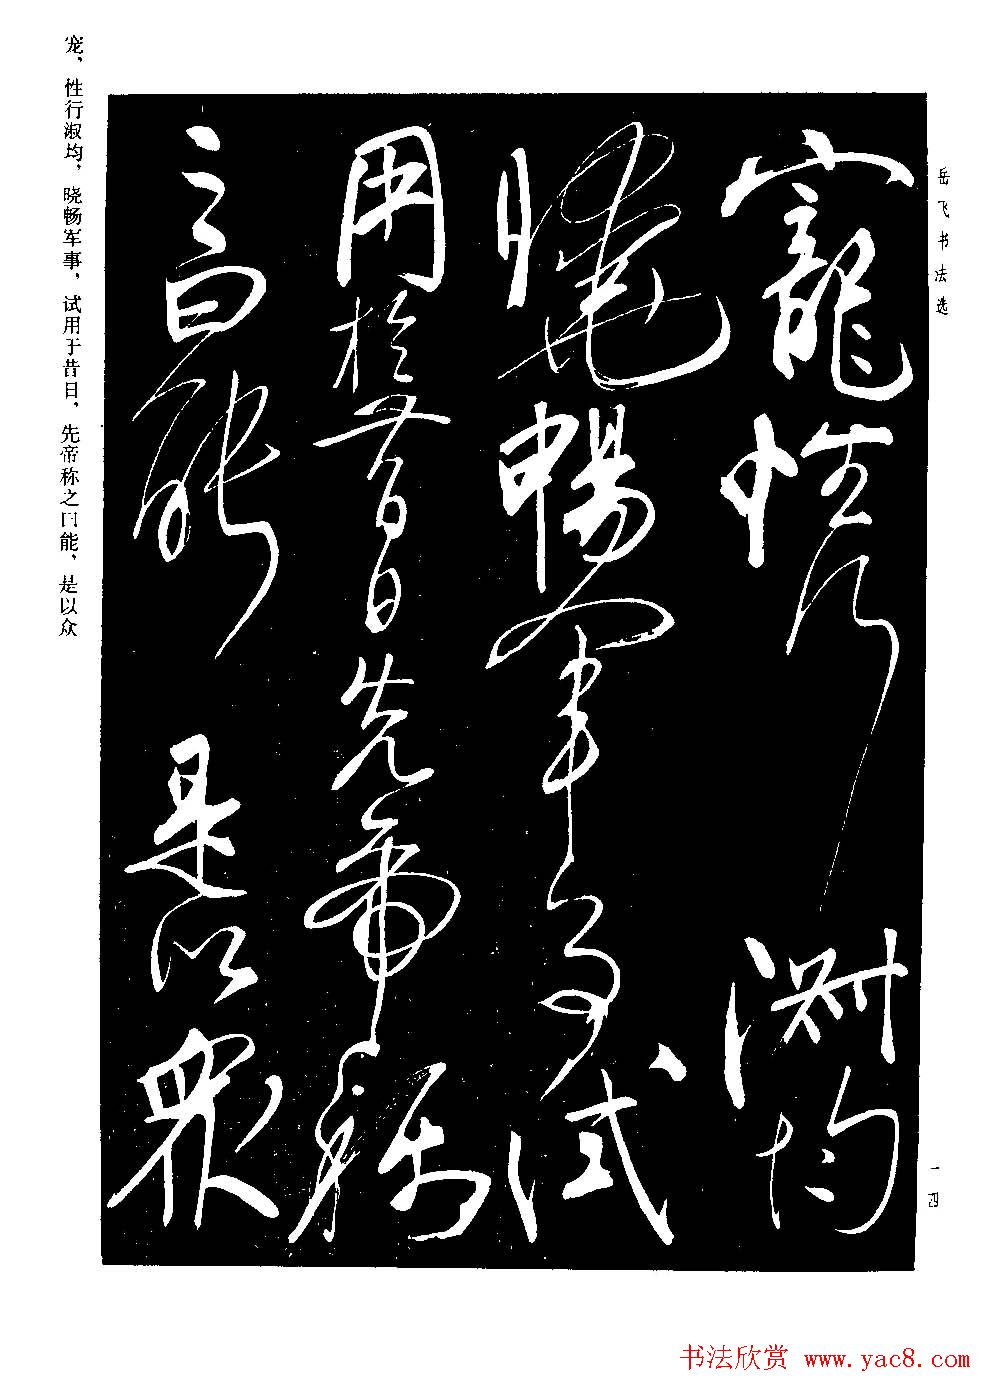 岳飞书法选
寵性行淑均
曉暢軍事試
用於昔日先帝稱
之曰能是以眾
宠，性行淑均，晓畅军事，试用于昔日，先帝称之曰能，是以众
一四
书法欣赏 www.yac8.com